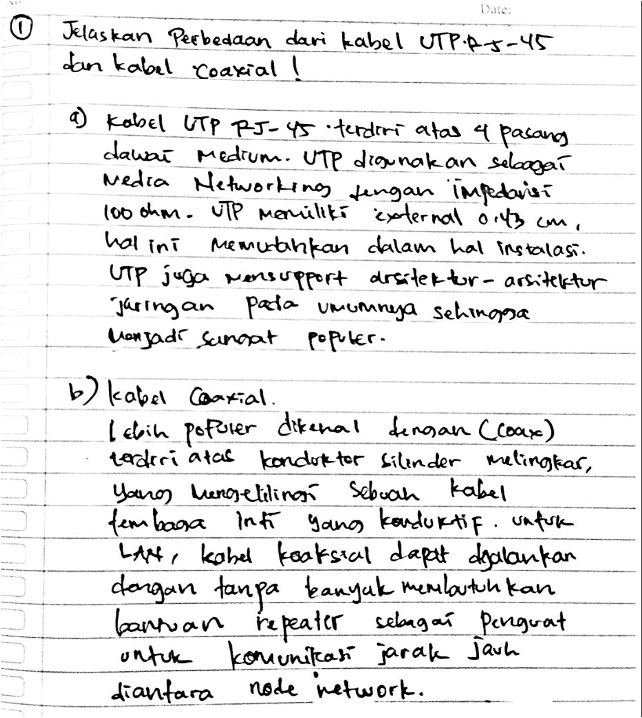 Date:
① Jelaskan Perbedaan dari kabel UTP RJ-45
dan kabel coaxial !
a) Kabel UTP RJ-45 terdiri atas 4 pasang
dawai medium. UTP digunakan sebagai
Media Networking dengan impedansi
100 ohm. UTP memiliki external 0,43 cm,
hal ini memudahkan dalam hal instalasi.
UTP juga mensupport arsitektur-arsitektur
jaringan pada umumnya sehingga
menjadi sangat populer.
b) Kabel Coaxial.
Lebih populer dikenal dengan (coax)
terdiri atas konduktor silinder melingkar,
yang mengelilingi sebuah kabel
tembaga inti yang konduktif. untuk
LAN, kabel koaksial dapat dijalankan
dengan tanpa banyak membutuhkan
bantuan repeater sebagai penguat
untuk komunikasi jarak jauh
diantara node network.